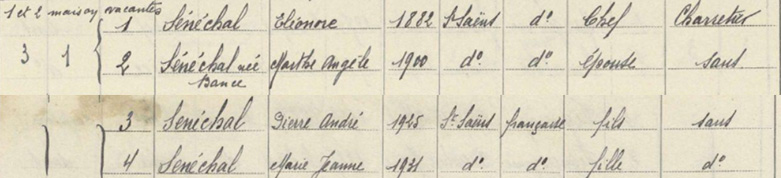 1 et 2 maison vacantes
1 Sénéchal Eléonore 1882 St Saëns do. do. Chef Charretier
3 1 2 Sénéchal née Marthe Angèle 1900 do. do. épouse sans
Bance
3 Senéchal Pierre André 1925 St Saëns française fils sans
4 Senéchal Marie Jeanne 1931 do. do. fille do